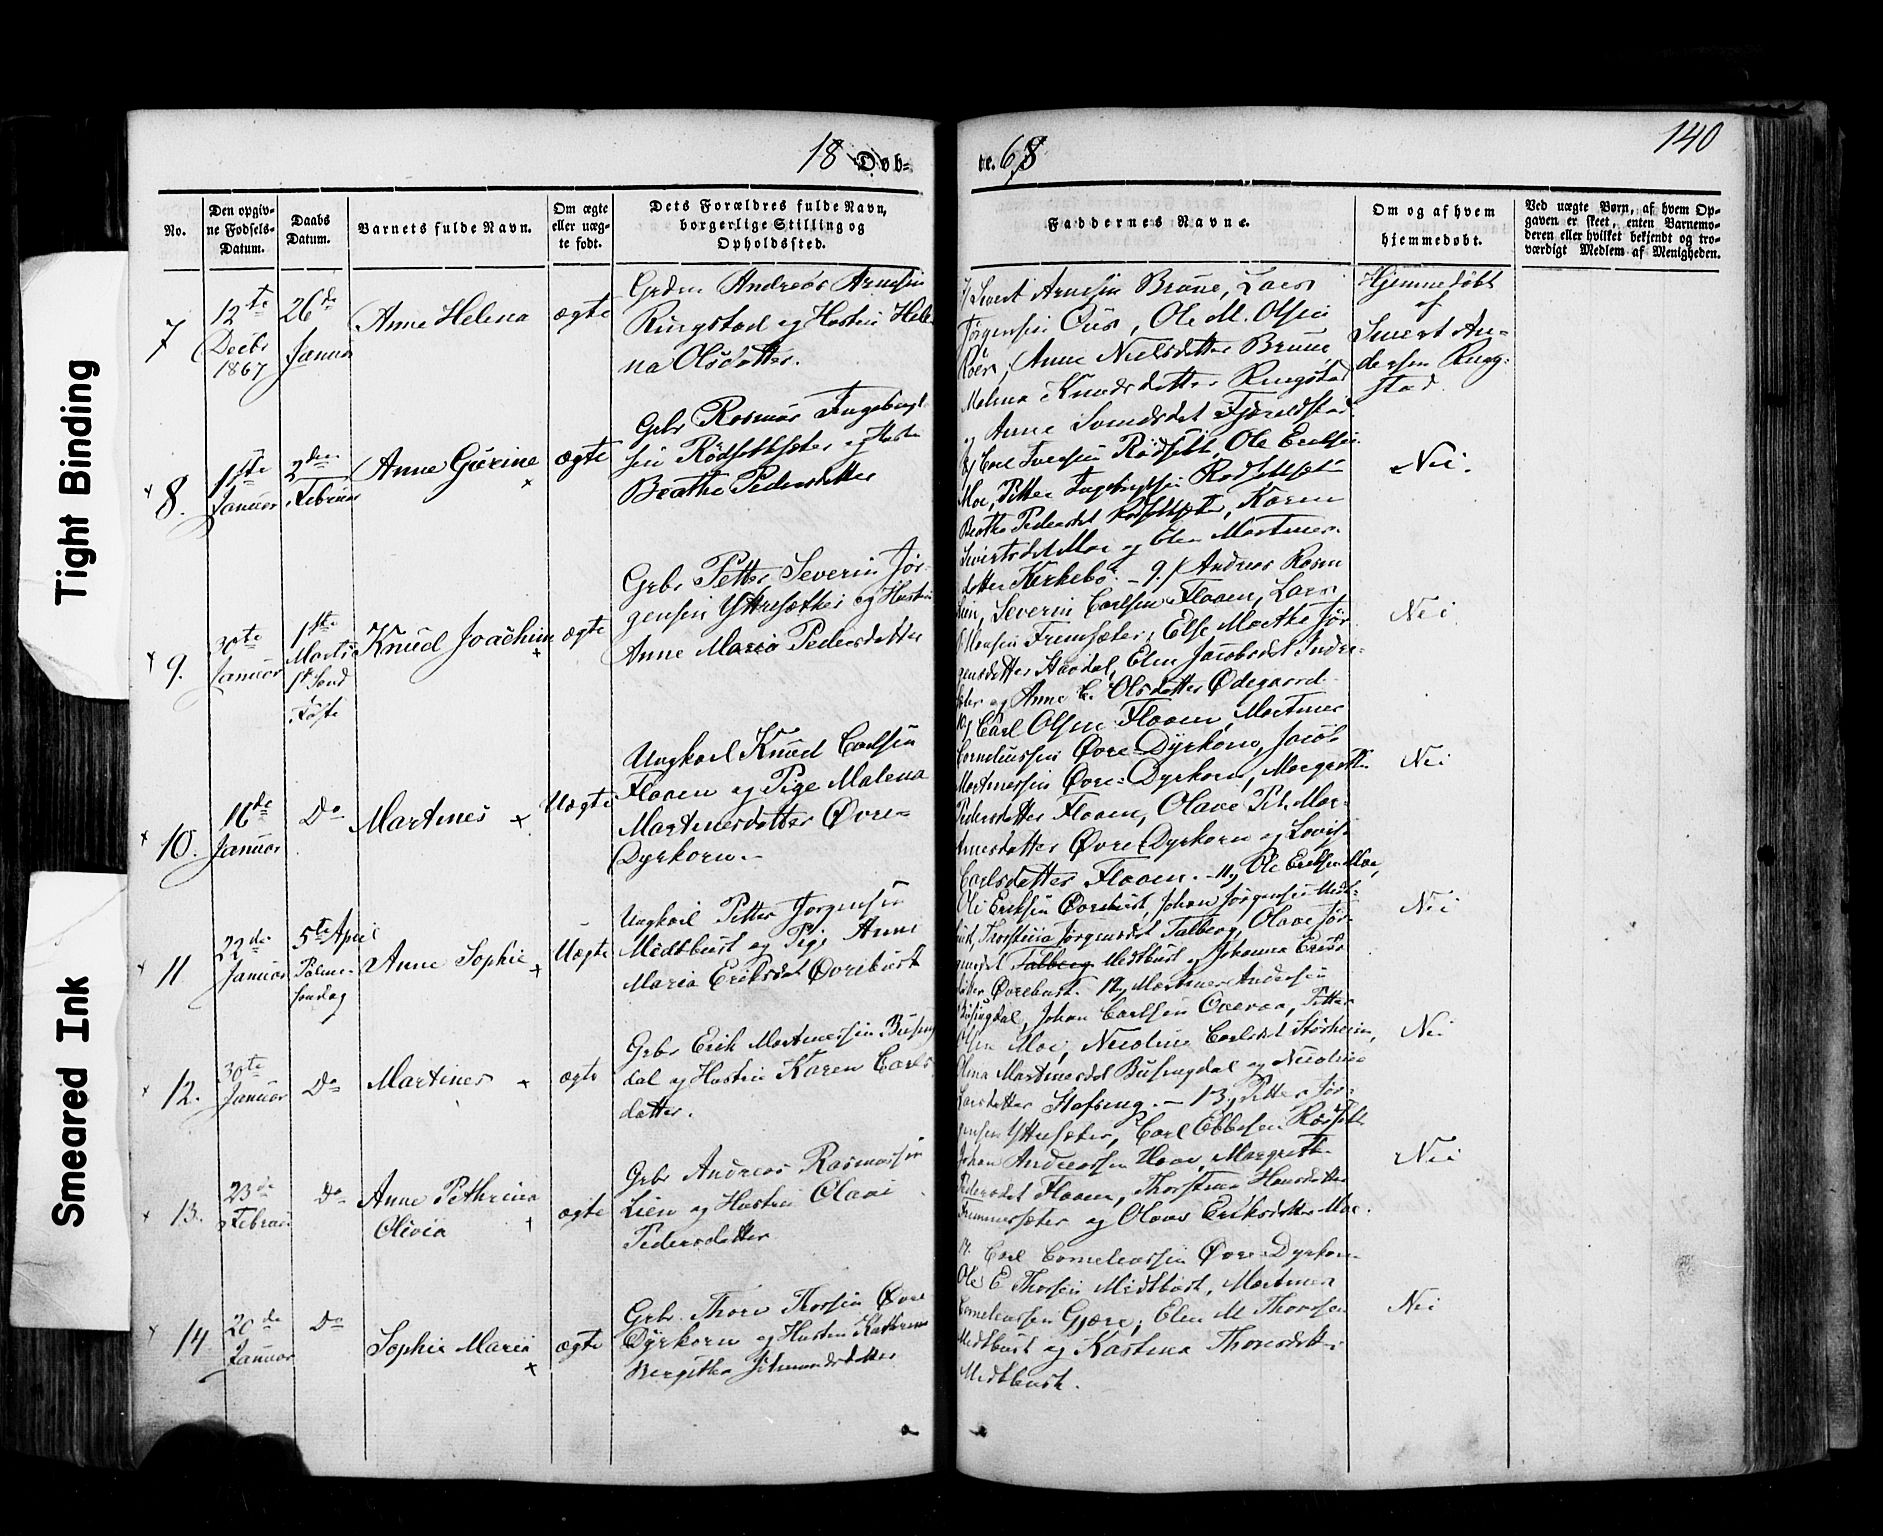 Tight Binding
Smeared Ink
18 Døb-
te. 68
140
No.
Den opgiv-
ne Fødsels-
Datum.
Daabs
Datum.
Barnets fulde Navn.
Om ægte
eller uæg-
te født.
Dets Forældres fulde Navn,
borgerlige Stilling og
Opholdssted.
Faddernes Navne.
Om og af hvem
hjemmedøbt.
Ved uægte Børn, af hvem Op-
gaven er skeet, enten Barnemo-
deren eller hvilket bekjendt og tro-
værdigt Medlem af Menigheden.
7
12te
Decbr
1867
26de
Januar
Anne Helena
ægte
Andreas Arnesen
Ringstad og Hustru Hele-
na Olsdatter.
7/ Sivert Arnesen Brune, Lars
Jørgensen Ous, Ole M. Olsen
Anne Nielsdatter Brune
Malena Knudsdatter Ringstad
og Anne Fjæreldstad
Hjemmedøbt
af
Sivert An-
dersen Ring-
stad.
8.
Januar
2den
Februar
Anne Gurine
ægte
Gbr Rasmus Ingebrigt-
sen Rødsetsæter og Hustru
Beathe Pedersdatter
8/ Carl Iversen Rødset, Ole Eriksen
Moe, Petter Ingebrigtsen Rødsetsæt
Beathe Pedersdet Rødsetsæter, Karen
Sivertsdet Moe og Elen Martines-
datter Kirkebø. - 9./ Andreas Rasmu
Nei.
9.
30te
Januar
1ste
Marts
1st Sønd
i Faste
Knud Joachim
ægte
Gbr Petter Severin Jør-
gensen Yttresæther og Hustru
Anne Maria Pedersdatter
sen, Severin Carlsen Flaaen, Lars
Hansen Fremsæter, Else Marthe Jør
gensdatter Elen Jacobsdet Indre-
sæter og Anne C. Olsdatter Ødegaard-
Nei
10.
16de
Januar
Do
Martines
Uægte
Ungkarl Knud Carlsen
Flaaen og Pige Malena
Martinesdatter Øvre-
Dyrkorn.-
10/ Carl Olsen Flaaen, Martines
Corneliussen Øvre-Dyrkorn, Jacob
Martinessen Øvre-Dyrkorn, Margrethe
Pedersdatter Flaaen, Olave Pet. Mar-
tinesdatter Øvre Dyrkorn og Lovise
Carlsdatter Flaaen. - 11, Ole Eriksen Moe,
Nei
11
22de
Januar
5te April
Palme-
søndag
Anne Sophie
Uægte
Ungkarl Petter Jørgensen
Midtbust og Pige Anne
Maria Eriksdet Øvrebust
Ole Eriksen Øvrebust, Johan Jørgensen Midt-
bust, Thorstina Jørgensdet Talberg, Olave Jør-
gensdet Talberg Midtbust og Johanna Eriks-
datter Øvrebust. 12, Martines Andersen
Nei
12.
30te
Januar
Do
Martines
ægte
Gbr Erik Martinessen Busing
dal og Hustru Karen Carls-
datter.
Busingdal, Johan Carlsen Overaa, Petter
Olsen Moe, Nicoline Carlsdet Størheim,
Olina Martinesdet Busingdal og Nicoline
Larsdatter Stafseng. - 13, Petter Jør-
Nei
13.
23de
Februar
Do
Anne Pethrina
Olivia
ægte
Gbr Andreas Rasmussen
Lien og Hustru Olave
Pedersdatter
gensen Yttresæter, Carl Ebbesen Rødset
Johan Andreassen Haav, Margrethe
Pedersdet Flaaen, Thorstina Hansdatter
Fremmersæter og Olave Eriksdatter Moe.
Nei
14
20de
Januar
Do
Sophie Maria
ægte
Gbr. Thore Thorsen Øvre
Dyrkorn og Hustru Kathrine
Bergitha
14. Carl Corneliussen Øvre-Dyrkorn
Ole E Thorsen Midtbust, Martines
Corneliussen Gjære, Elen M Thoresda
Midtbust og Kastena Thoresdatter
Midtbust.
Nei